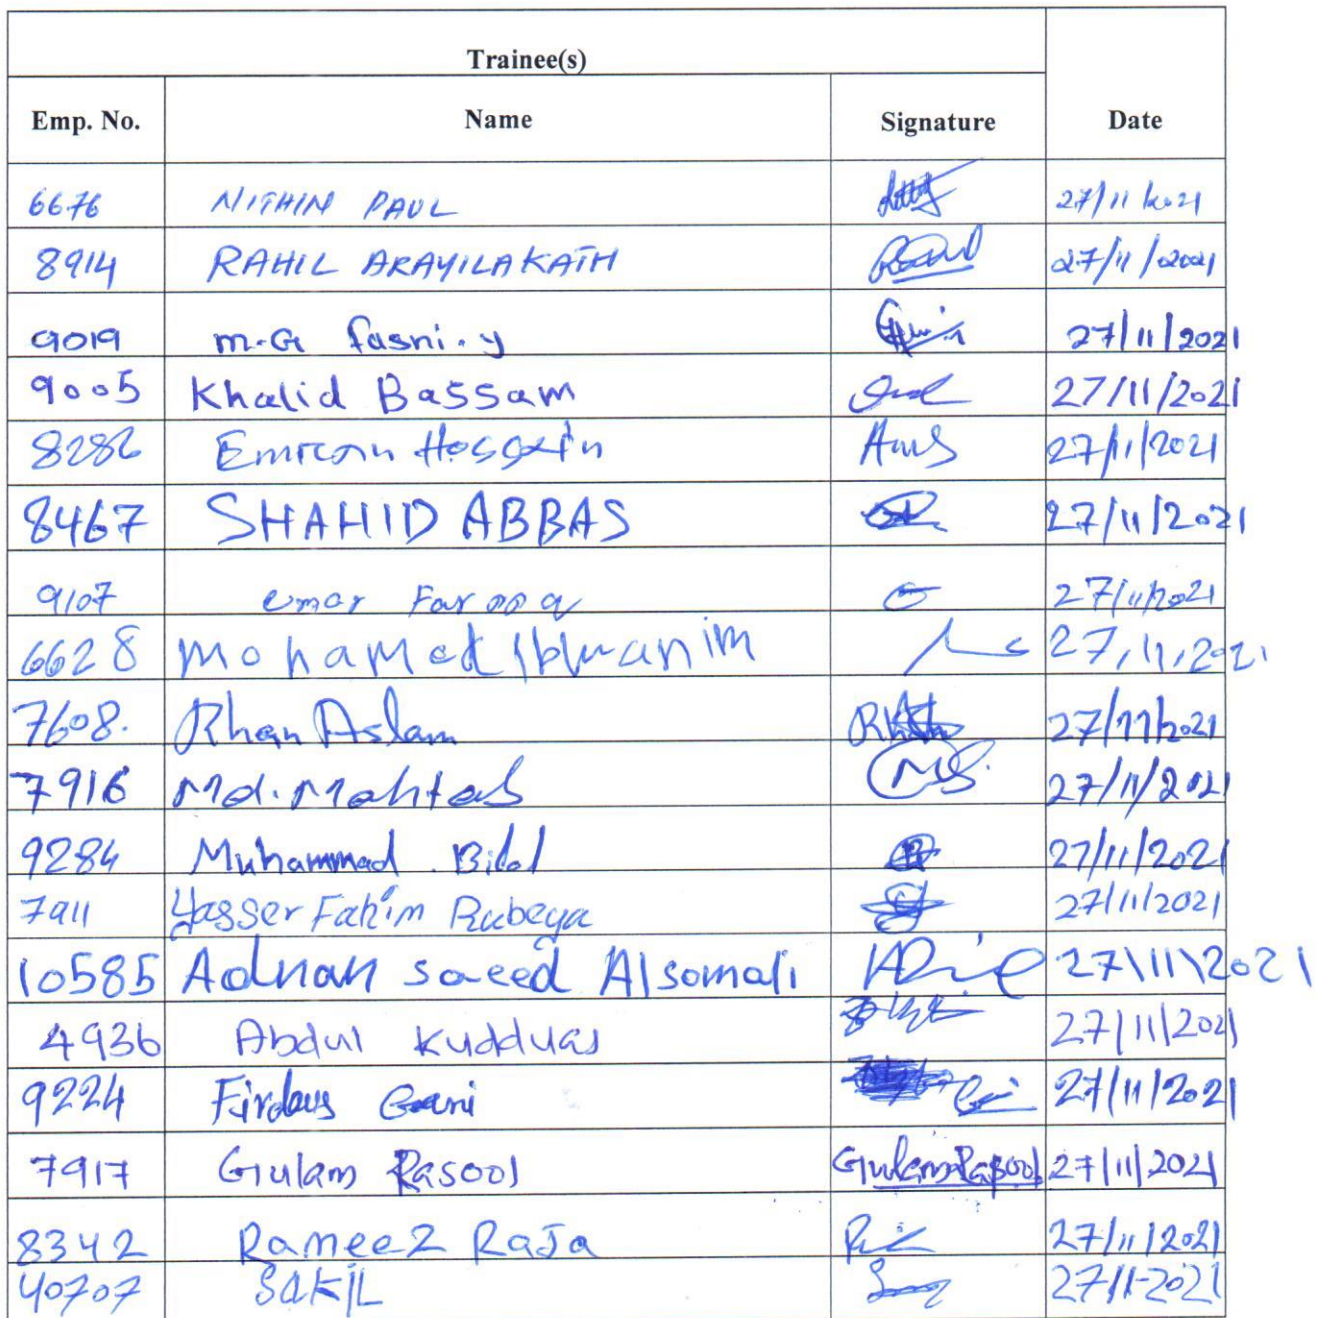 Trainee(s)
Emp. No. Name Signature Date
6676 NITHIN PAUL 27/11/2021
8914 RAHIL ARAYILAKATH 27/11/2021
9019 M.G fasni.y 27/11/2021
9005 Khalid Bassam 27/11/2021
8286 Emran Hossain 27/11/2021
8467 SHAHID ABBAS 27/11/2021
9107 emar Farooq 27/11/2021
6628 Mohamed Ibhranim 27,11,2021
7608. Khan Aslam 27/11/2021
7916 Md. Mahtab 27/11/2021
9284 Muhammad . Bilal 27/11/2021
7911 Yasser Fahim Rubeya 27/11/2021
10585 Adnan saeed Alsomali 27\11\2021
4936 Abdul Kudduas 27/11/2021
9224 Firdaus Gani 27/11/2021
7917 Gulam Rasool Gulam Rasool 27/11/2021
8342 Rameez Raja 27/11/2021
40707 SAKIL 27/11-2021